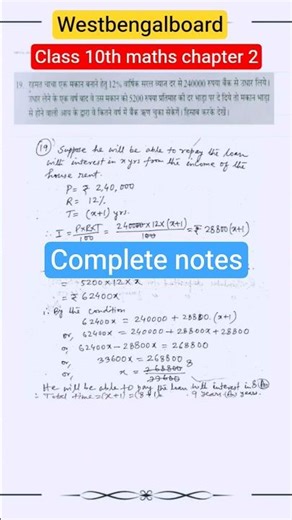 Westbengalboard
Class 10th maths chapter 2
19. रामत चाचा एक मकान बनाने हेतु 12% वार्षिक सरल ब्याज दर से 240000 रुपया बैंक से उधार लिये।
उधार लेने के एक वर्ष बाद वे उस मकान को 5200 रुपया प्रतिमाह की दर भाड़ा पर दे दिये तो मकान भाड़ा
से होने वाली आय के द्वारा वे कितने वर्ष में बैंक ऋण चुका सकेगें। हिसाब करके देखें।
(19) Suppose he will be able to repay the loan
with interest in x yrs from the income of the
house rent.
P = ₹ 2,40,000
R = 12%
T = (x+1) yrs.
∴ I = P×R×T/100 = 240000×12×(x+1)/100 = ₹ 28800(x+1)
Complete notes
= 5200×12×x
= ₹ 62400x
∴ By the condition
62400x = 240000 + 28800(x+1)
or, 62400x = 240000 + 28800x + 28800
or, 62400x - 28800x = 268800
or, 33600x = 268800
or, x = 268800/33600 8
He will be able to pay the loan with interest in 8
∴ Total time = (x+1) = (8+1) 9 years